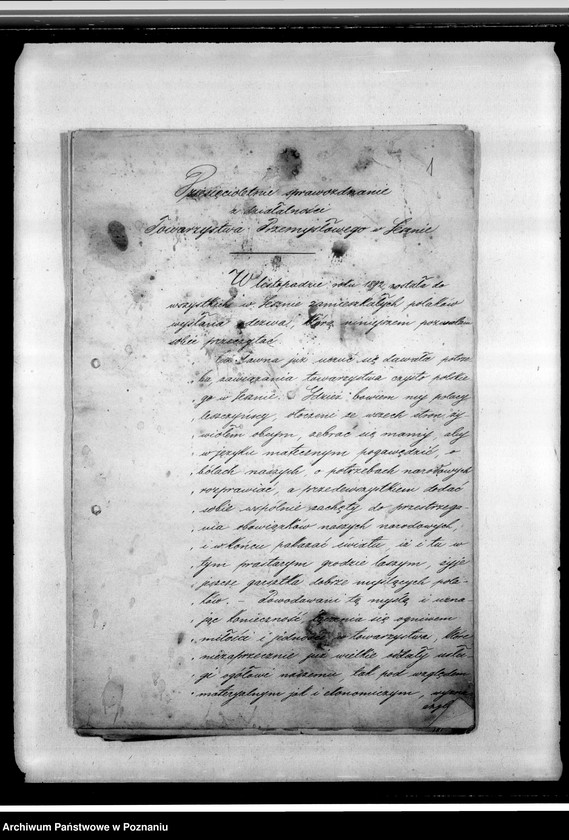 1
sprawozdanie
z działalności
Towarzystwa Przemysłowego w Lesznie
W listopadzie roku 1892 została do
wszystkich w Lesznie zamieszkałych polaków
wysłana odezwa, którą niniejszem pozwala
sobie przeczytać
dawna już uczuć się dawała potrze
ba zawiązania towarzystwa czysto polskie
go w Lesznie. Gdzież bowiem my polacy
leszczyńscy, otoczeni ze wszech stron ży
wiołem obcym, zebrać się mamy, aby
w języku macierzystym pogawędzić, o
bólach naszych, o potrzebach narodowych
rozprawiać, a przedewszystkiem dodać
sobie wspólnie zachęty do przestrzega
nia obowiązków naszych narodowych,
i w końcu pokazać światu, iż i tu w
tym prastarym grodzie żyje
jeszcze garstka dobrze myślących pola
ków. – Powodowani tą myślą i uzna
jąc konieczność łączenia się ogniwem
miłości i jedności w towarzystwa, które
niezaprzecznie już wielkie oddały usłu
gi ogółowi naszemu, tak pod względem
materyalnym jak i ekonomicznym,